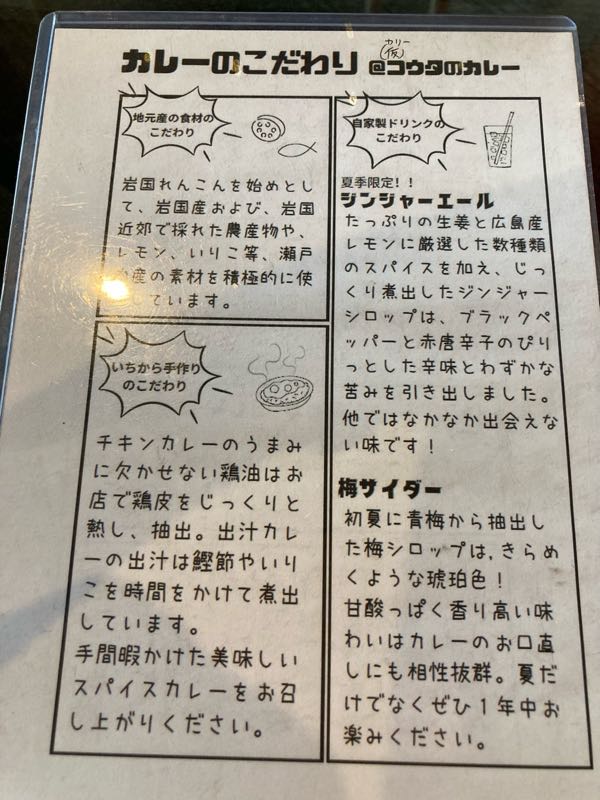 カレーのこだわり @コウタのカレー
カリー
(仮)
地元産の食材の
こだわり
岩国れんこんを始めとし
て、岩国産および、岩国
近郊で採れた農産物や、
レモン、いりこ等、瀬戸
産の素材を積極的に使
しています。
いちから手作り
のこだわり
チキンカレーのうまみ
に欠かせない鶏油はお
店で鶏皮をじっくりと
熱し、抽出。出汁カレ
ーの出汁は鰹節やいり
こを時間をかけて煮出
しています。
手間暇かけた美味しい
スパイスカレーをお召
し上がりください。
自家製ドリンクの
こだわり
夏季限定！！
ジンジャーエール
たっぷりの生姜と広島産
レモンに厳選した数種類
のスパイスを加え、じっ
くり煮出したジンジャー
シロップは、ブラックペ
ッパーと赤唐辛子のぴり
っとした辛味とわずかな
苦みを引き出しました。
他ではなかなか出会えな
い味です！
梅サイダー
初夏に青梅から抽出し
た梅シロップは、きらめ
くような琥珀色！
甘酸っぱく香り高い味
わいはカレーのお口直
しにも相性抜群。夏だ
けでなくぜひ1年中お
楽みください。